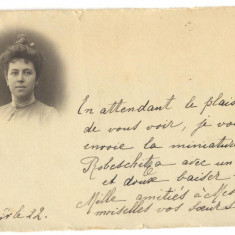 En attendant le plais
de vous voir, je vou
envoie la miniatur
Robeschetza avec un
et doux baiser
Mille amitiés à Mes
moiselles vos sœurs
le 22.